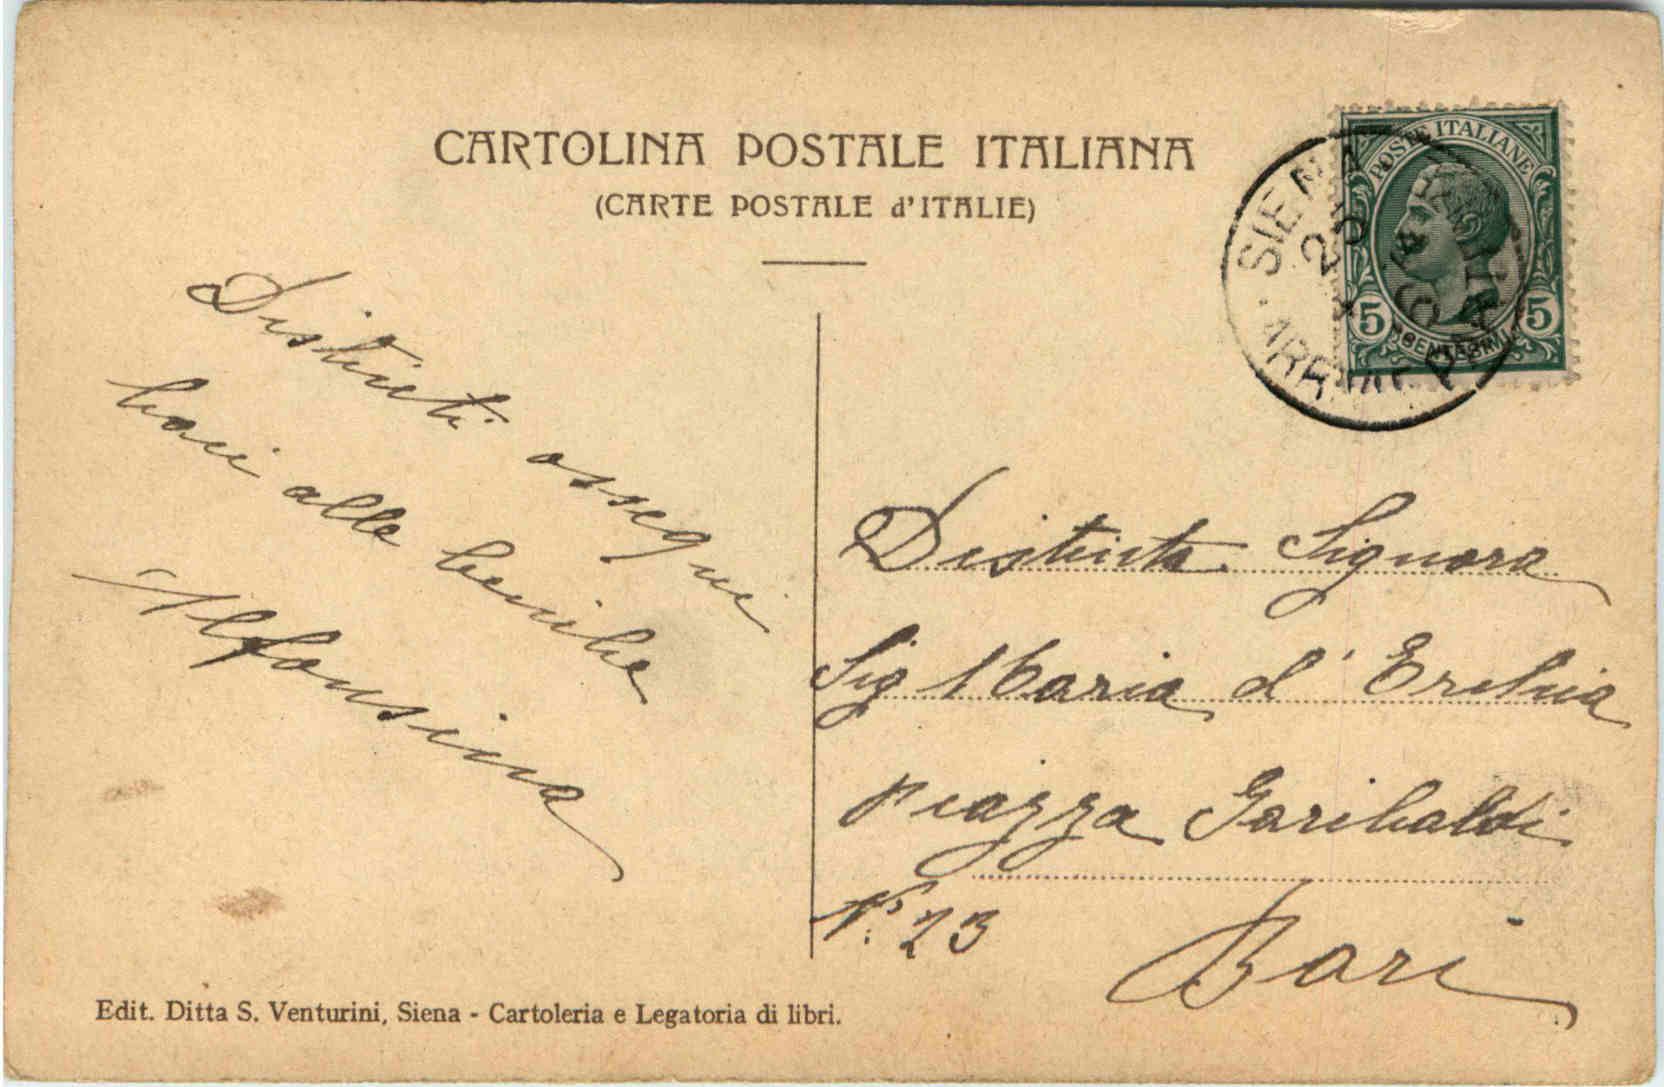 CARTOLINA POSTALE ITALIANA
(CARTE POSTALE d'ITALIE)
POSTE ITALIANE
5 5
CENTESIMI
SIENA
Distinti ossequi
baci alle bimbe
Alfonsina
Distinta Signora
Sig Maria d'
Piazza Garibaldi
N.º 23
Bari
Edit. Ditta S. Venturini, Siena - Cartoleria e Legatoria di libri.